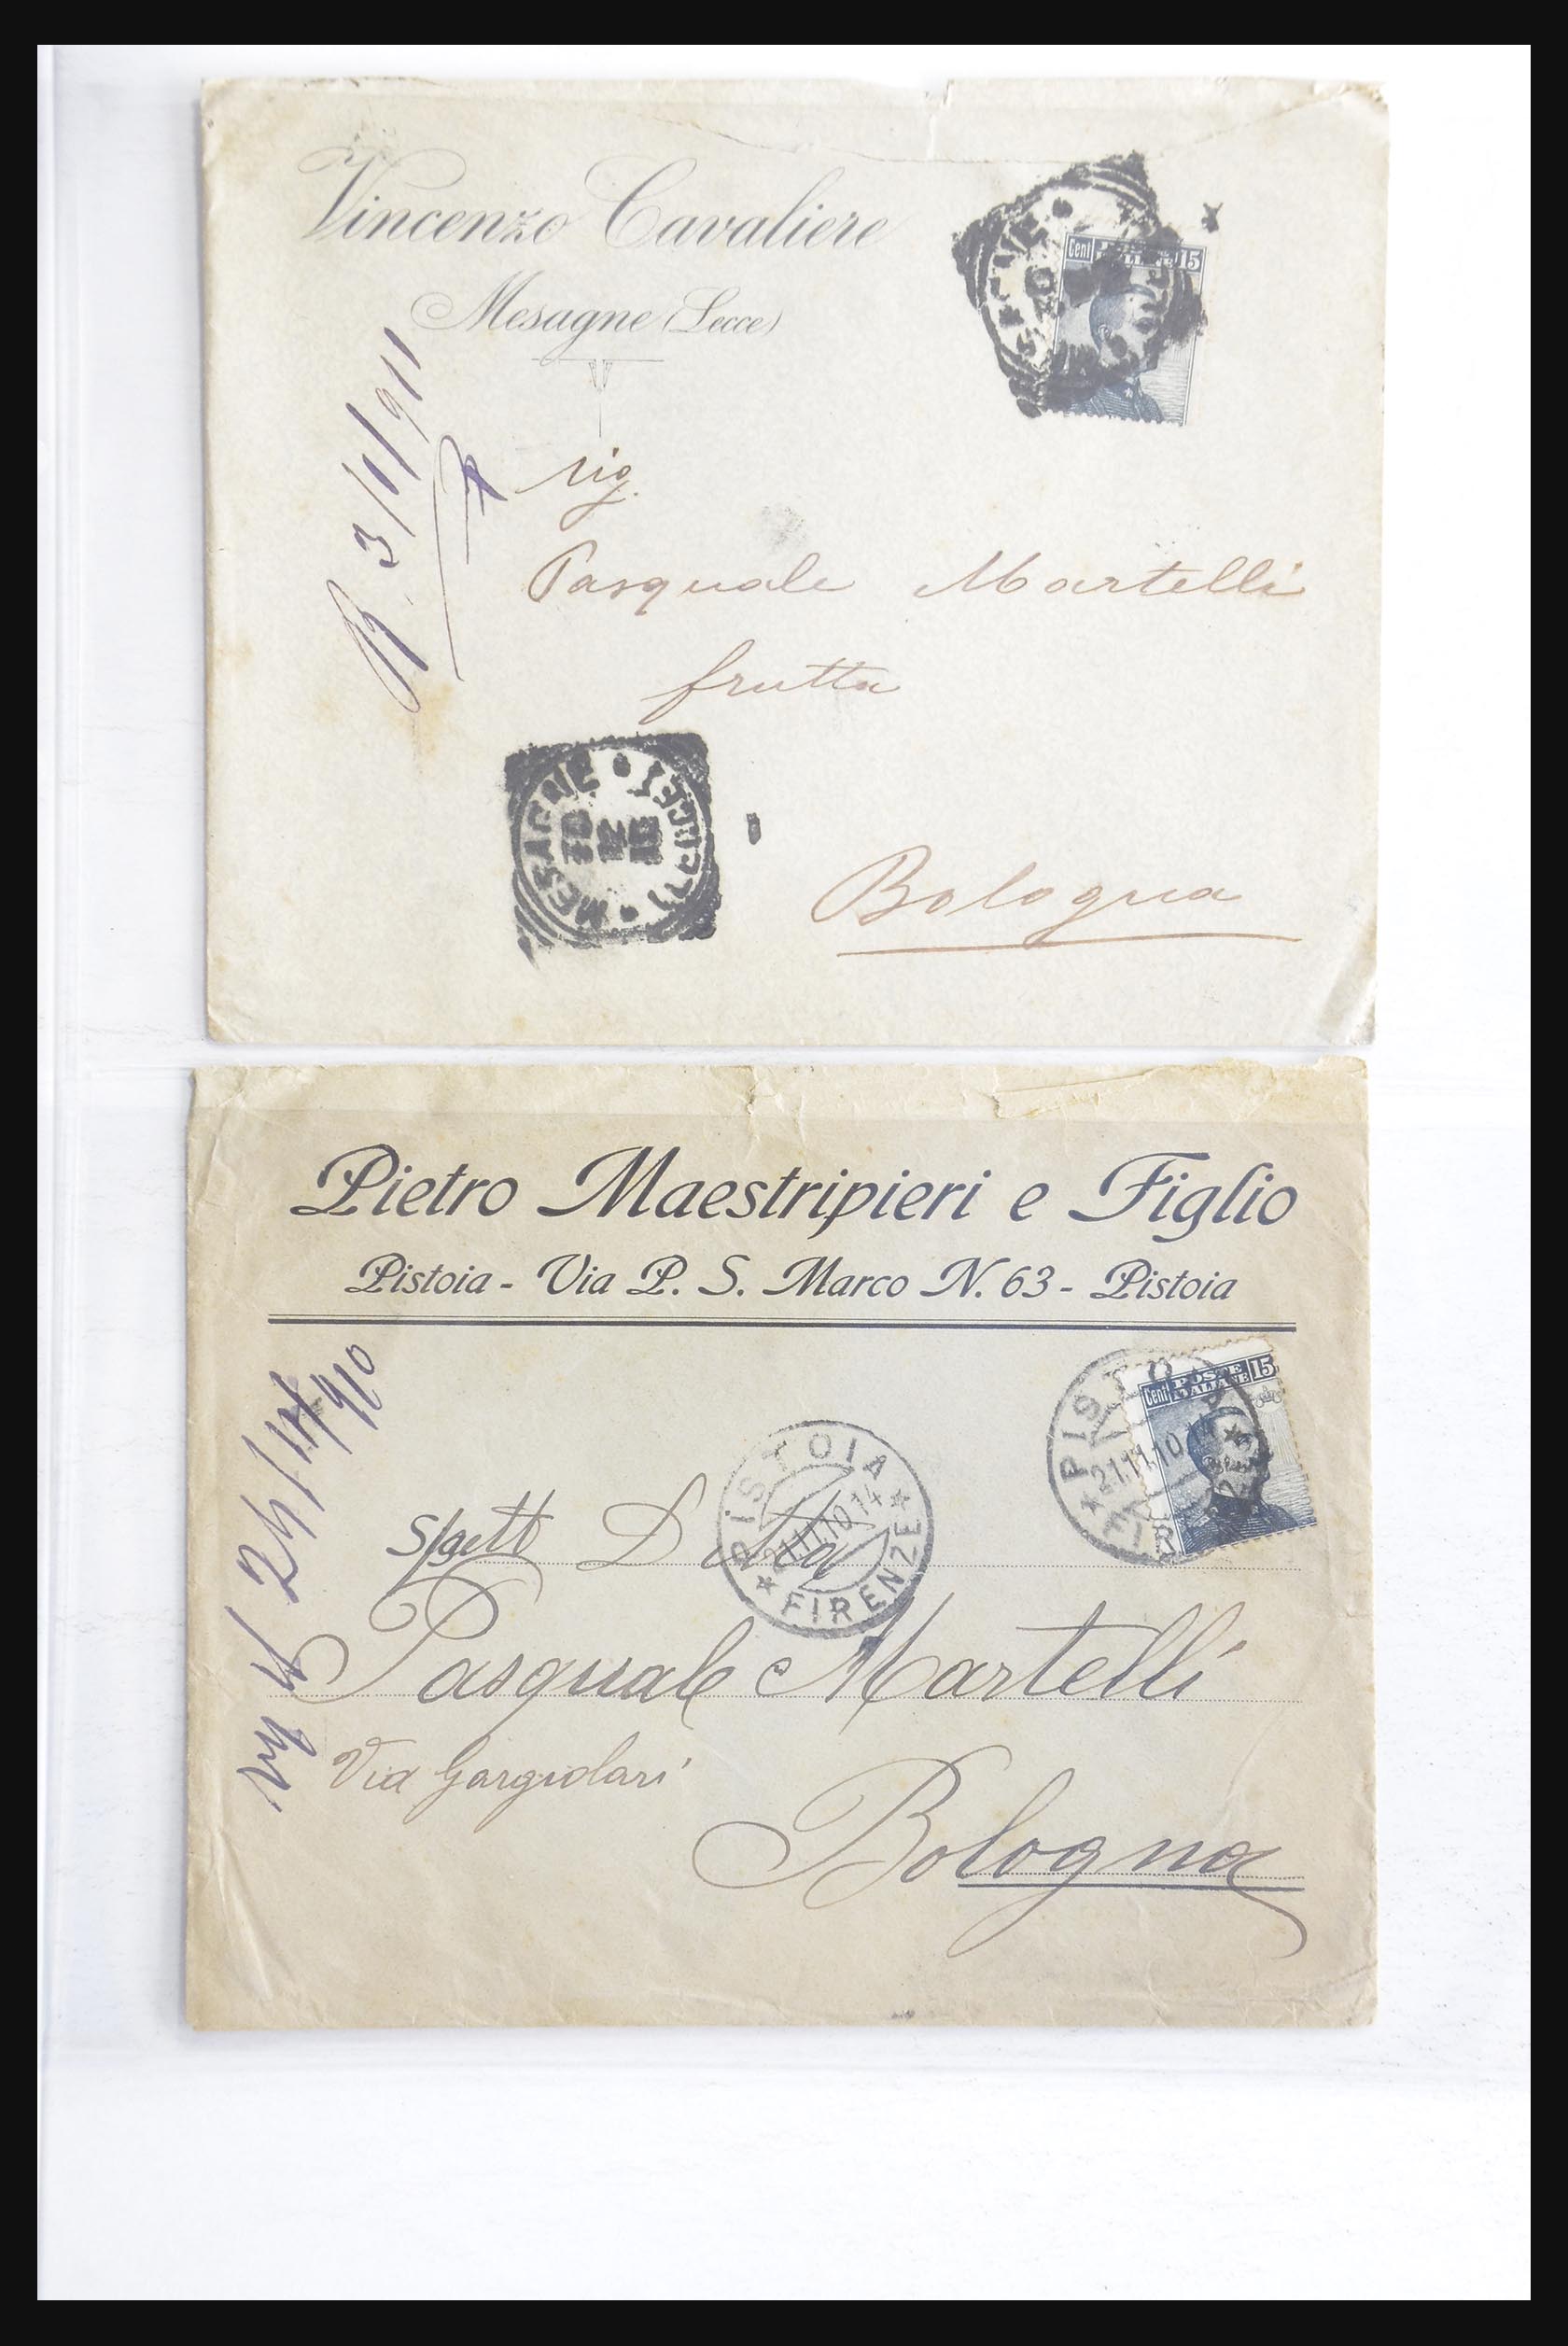 Vincenzo Cavaliere
Mesagne (Lecce)
Cent POSTE ITALIANE 15
R. 3/1/911
Sig.
Pasquale Martelli
frutta
MESAGNE (LECCE)
30 12 10
Bologna
Pietro Maestripieri e Figlio
Pistoia - Via P. S. Marco N. 63 - Pistoia
Cent POSTE ITALIANE 15
PISTOIA
21.11.10.14
FIRENZE
PISTOIA
21.11.10.14
FIRENZE
910
Spett Ditta
Pasquale Martelli
Via Gargiolari
Bologna